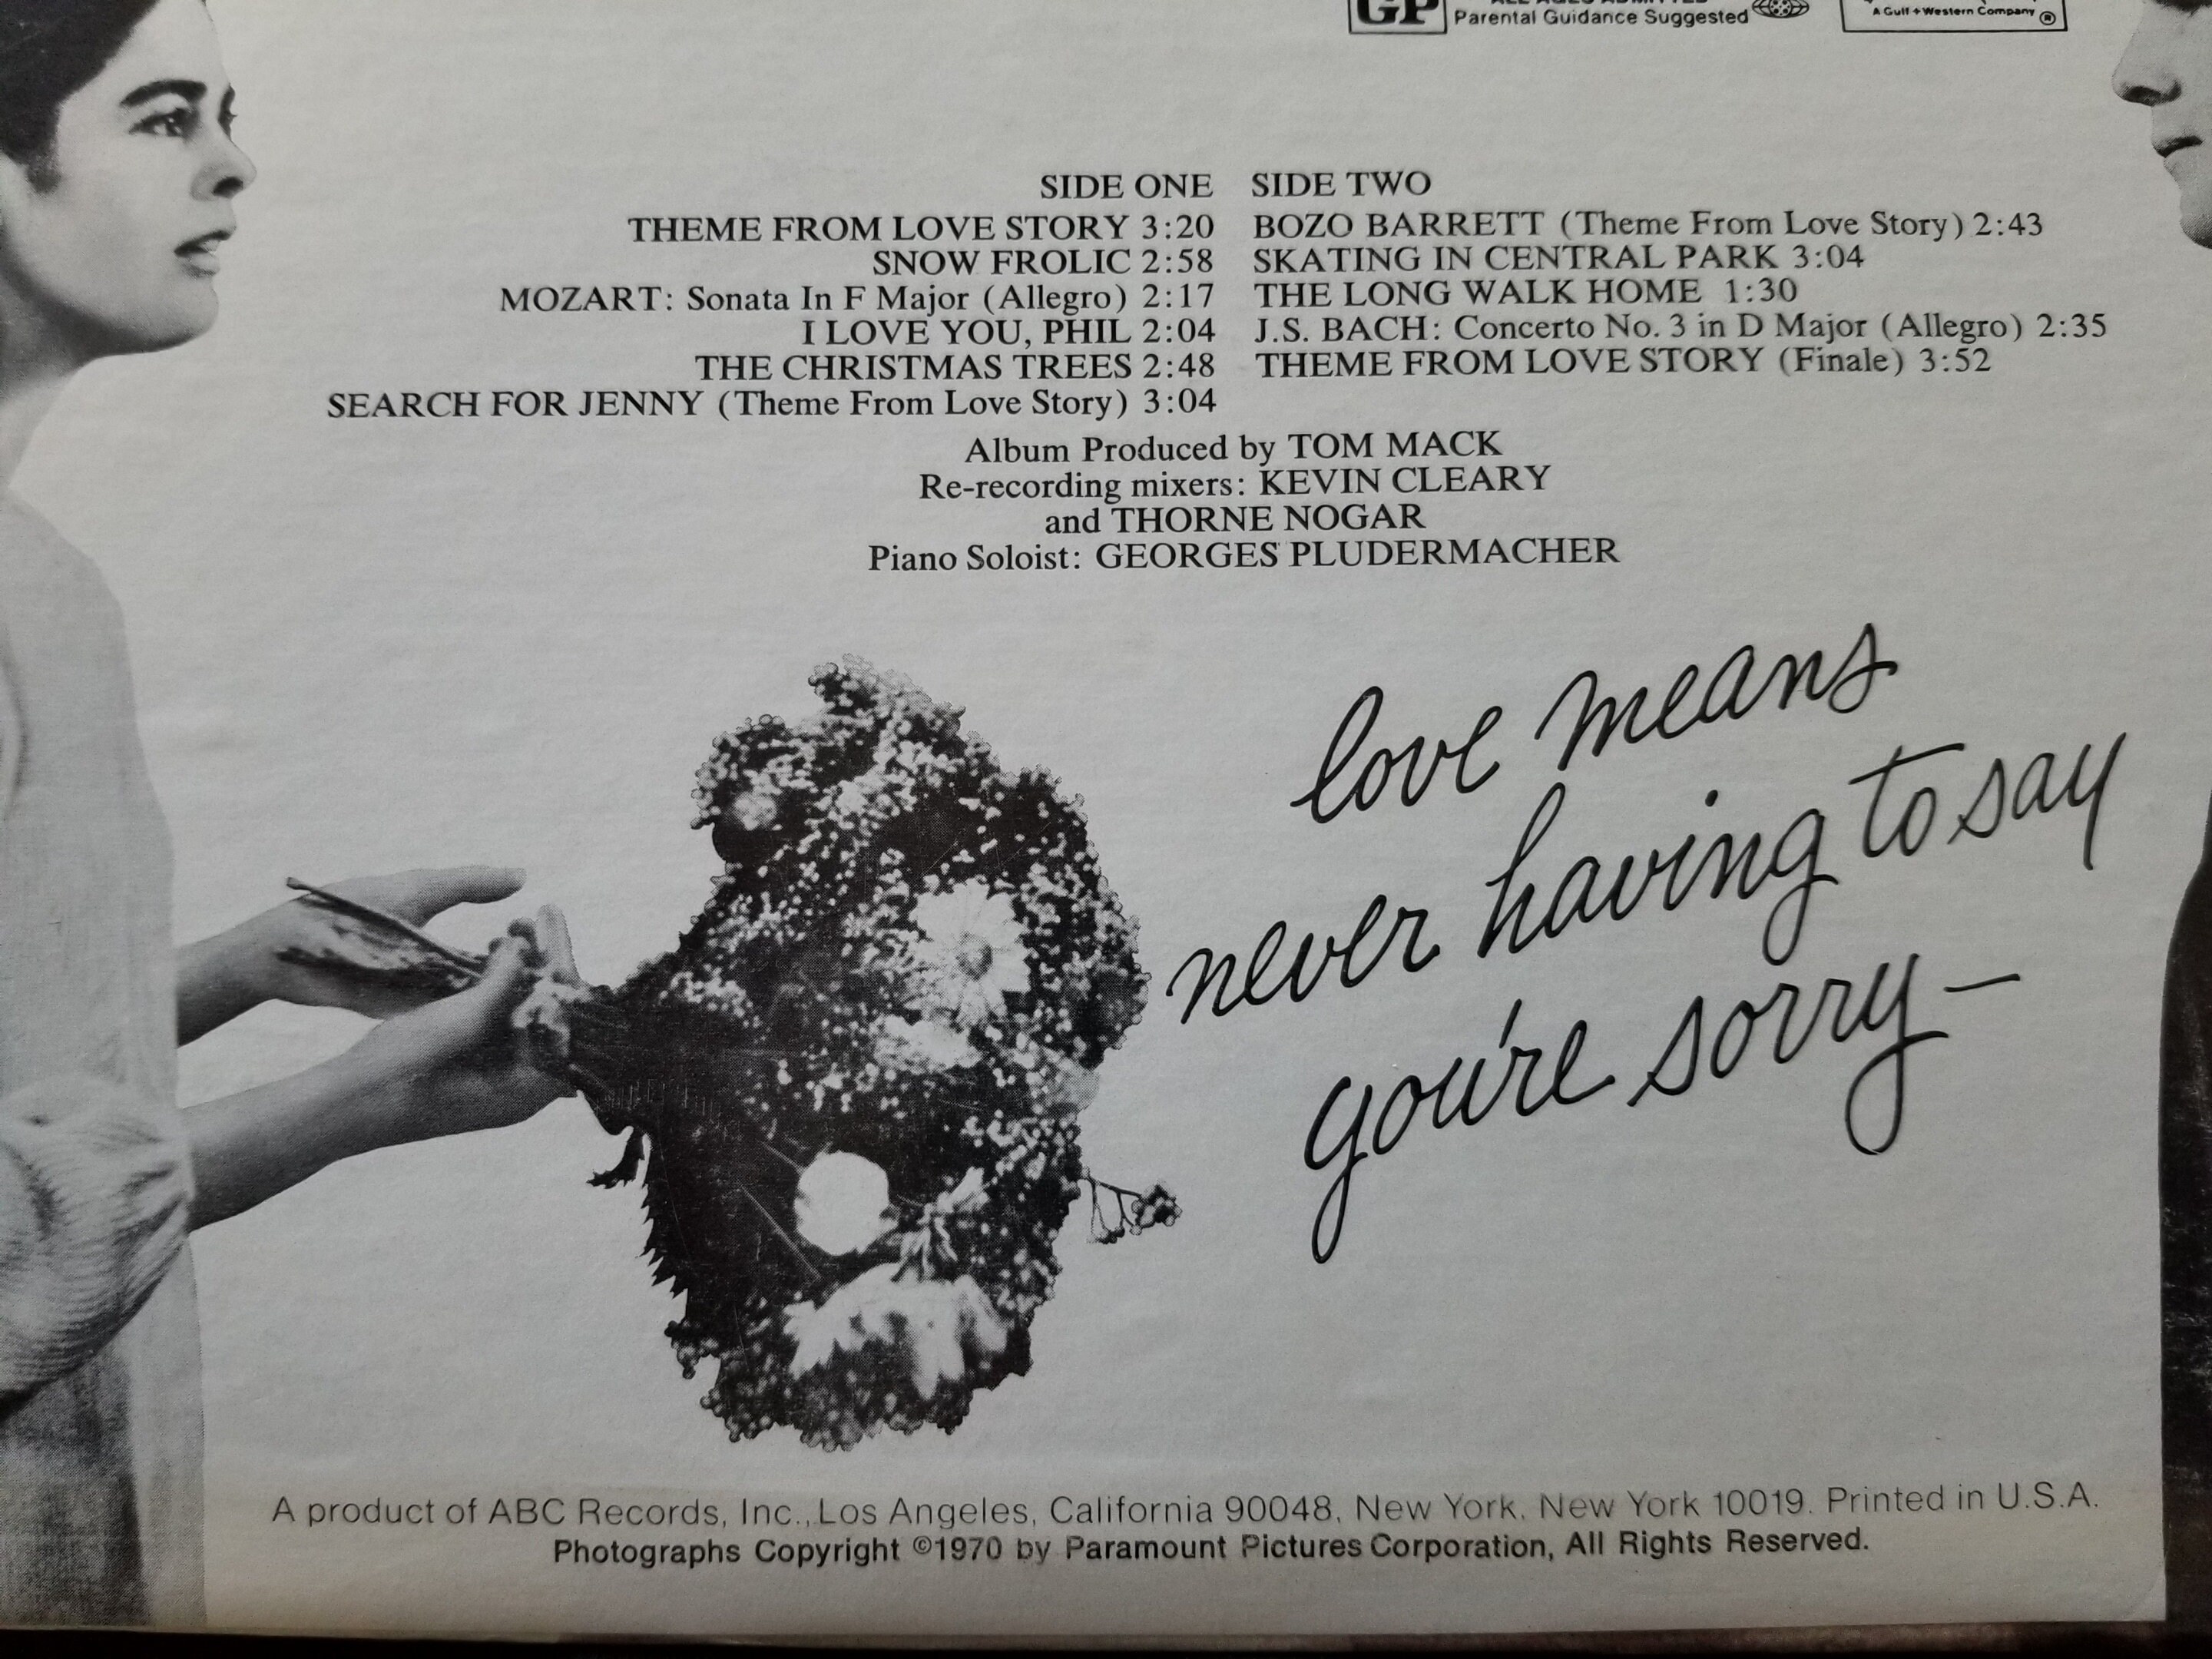 GP
Parental Guidance Suggested
A Gulf+Western Company ®
SIDE ONE
THEME FROM LOVE STORY 3:20
SNOW FROLIC 2:58
MOZART: Sonata In F Major (Allegro) 2:17
I LOVE YOU, PHIL 2:04
THE CHRISTMAS TREES 2:48
SEARCH FOR JENNY (Theme From Love Story) 3:04
SIDE TWO
BOZO BARRETT (Theme From Love Story) 2:43
SKATING IN CENTRAL PARK 3:04
THE LONG WALK HOME 1:30
J.S. BACH: Concerto No. 3 in D Major (Allegro) 2:35
THEME FROM LOVE STORY (Finale) 3:52
Album Produced by TOM MACK
Re-recording mixers: KEVIN CLEARY
and THORNE NOGAR
Piano Soloist: GEORGES PLUDERMACHER
love means
never having to say
you're sorry—
A product of ABC Records, Inc., Los Angeles, California 90048, New York, New York 10019. Printed in U.S.A.
Photographs Copyright ©1970 by Paramount Pictures Corporation, All Rights Reserved.